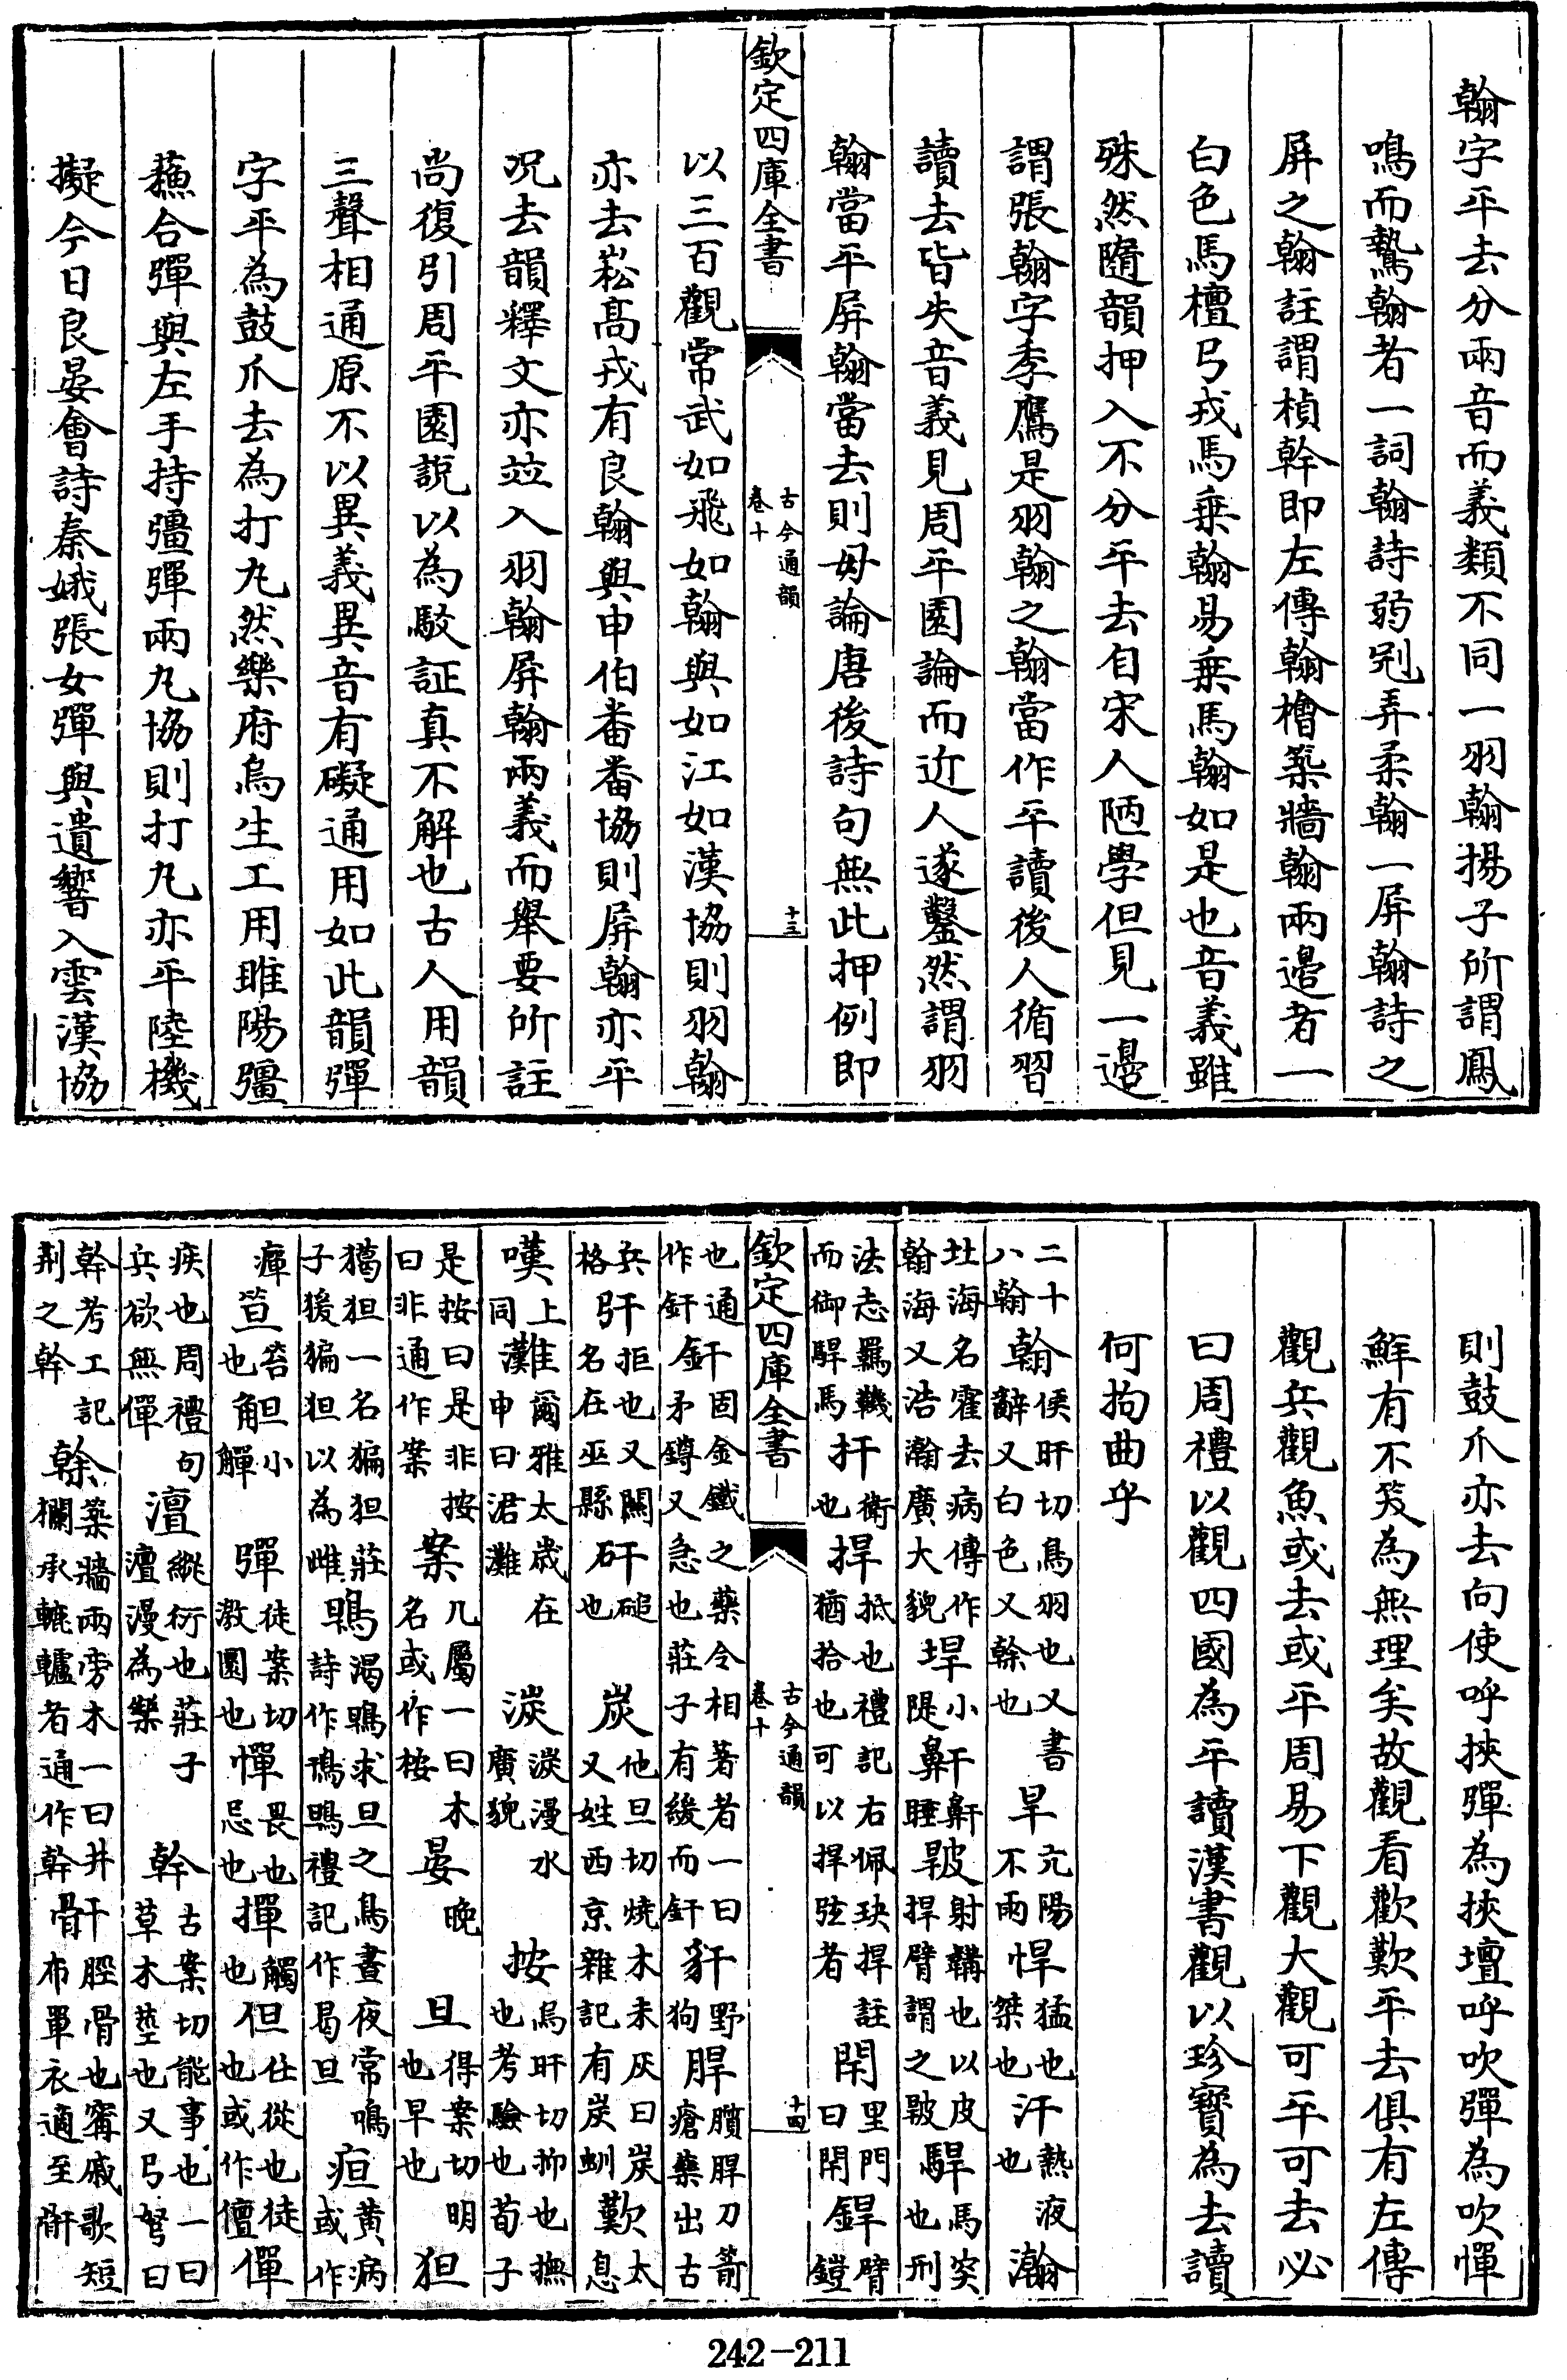 翰字平去分兩音而義類不同一羽翰揚子所謂鳳
鳴而鷙翰者一詞翰詩翦剡弄柔翰一屏翰詩之
屏之翰註謂楨幹即左傳翰檜築牆翰兩邊者一
白色馬檀弓戎馬乗翰易乗馬翰如是也音義雖
殊然隨韻押入不分平去自宋人陋學但見一邊
謂張翰字季鷹是羽翰之翰當作平讀後人循習
讀去皆失音義見周平園論而近人遂鑿然謂羽
翰當平屏翰當去則毋論唐後詩句無此押例即
欽定四庫全書
古今通韻
卷十
十三
以三百觀常武如飛如翰與如江如漢協則羽翰
亦去崧髙戎有良翰與申伯畨畨協則屏翰亦平
况去韻釋文亦竝入羽翰屏翰兩義而舉要所註
尚復引周平園說以為駮証真不解也古人用韻
三聲相通原不以異義異音有礙通用如此韻彈
字平為鼓爪去為打丸然樂府烏生工用睢陽彊
蘓合彈與左手持彊彈兩丸協則打丸亦平陸機
擬今日良晏會詩秦娥張女彈與遺響入雲漢協
則鼓爪亦去向使呼挾彈為挾壇呼吹彈為吹憚
鮮有不笑為無理矣故觀看歡歎平去俱有左傳
觀兵觀魚或去或平周易下觀大觀可平可去必
曰周禮以觀四國為平讀漢書觀以珍寳為去讀
何拘曲乎
二十八翰 翰侯旰切鳥羽也又書辭又白色又榦也 旱亢陽不雨 悍猛也桀也 汗熱液也 瀚
北海名霍去病傳作翰海又浩瀚廣大貌 垾小干隄 鼾鼻鼾睡 皯射韝也以皮捍臂謂之皯 駻馬突也刑
法志羈鞿而御駻馬 扞衛也 捍抵也禮記右佩玦捍註猶拾也可以捍弦者 閈里門曰閈 銲臂鎧
欽定四庫全書
古今通韻
卷十
十四
也通釬固金鐵之藥令相著者一曰作釬 釬矛鐏又急也莊子有緩而釬 豻野狗 䏷䐣䏷刀箭瘡藥出古
兵格 㢨拒也又關名在巫縣 矸碫也 炭他旦切燒木未灰曰炭又姓西京雜記有炭虯 歎太息
嘆上同 灘爾雅太歳在申曰涒灘 湠湠漫水廣貌 按烏旰切抑也撫也考驗也荀子
是按曰是非按曰非通作案 案几屬一曰木名或作桉 晏晚 旦得案切明也早也 狚
獦狚一名猵狚莊子猨猵狚以為雌 鴠渴鴠求旦之鳥晝夜常鳴詩作鳱鴠禮記作曷旦 疸黄病或作
癉 笪笞也 觛小觶 彈徒案切激圜也 憚畏也忌也 撣觸也 但任從也徒也或作儃 僤
疾也周禮句兵欲無僤 澶縱衍也莊子澶漫為樂 幹古案切能事也一曰草木莖也又弓弩曰
幹考工記荆之幹 榦築牆兩旁木一曰井欄承轆轤者通作幹 骭骭脛骨也甯戚歌短布單衣適至骭
242-211